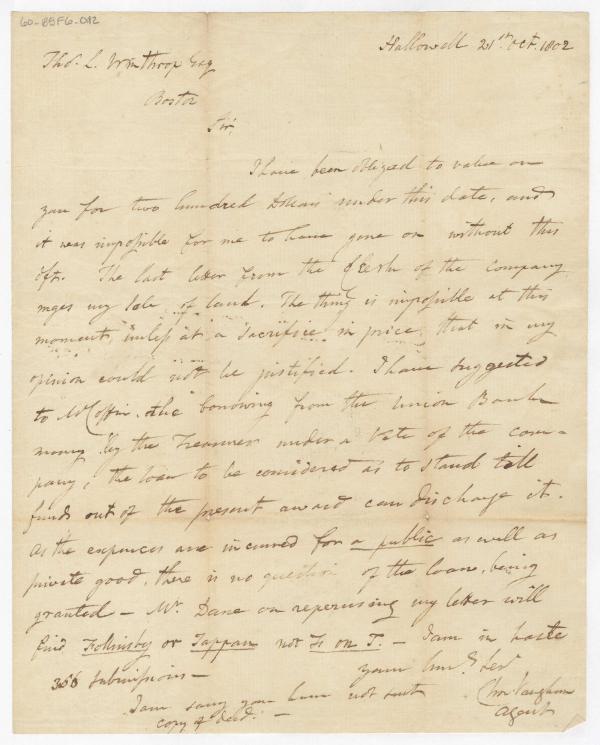 60-85F6-012
Hallowell 21st Oct. 1802
Thos. L. Winthrop Esq
Boston
Sir,
I have been obliged to value on
you for two hundred Dollars under this date, and
it was impossible for me to have gone on without this
The last letter from the Clerk of the company
urges my sale of land. The thing is impossible at this
moment, unless at a sacrifice in price, that in my
opinion could not be justified. I have suggested
to Mr Coffin, the borrowing from the Union Bank
money by the Treasurer under a Vote of the com-
pany; the loan to be considered as to stand till
funds out of the present award can discharge it.
As the expences are incured for a public as well as
private good, there is no question of the loan, being
granted - Mr. Dane on reperusing my letter will
find or Tappan not - I am in haste
366 submissions -
your hum. Ser
I am sorry you have not sent
Chas Vaughan
copy of deed. -
Agent